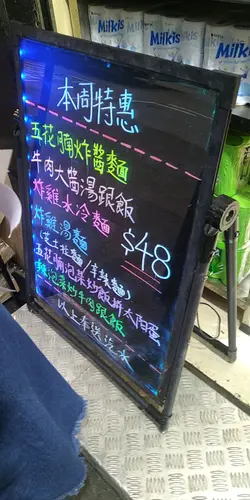 Milkis
Milkis
Milkis
Milk
本周特惠
五花腩炸醬麵
牛肉大醬湯跟飯
炸雞水冷麵
$48
炸雞湯麵
(芝士拉麵/辛辣麵)
五花腩泡菜炒飯拆太陽蛋
泡菜炒牛肉跟飯
以上未送汽水